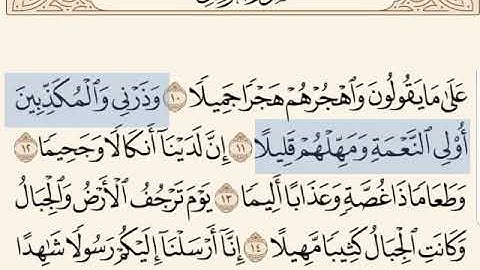 عَلَىٰ مَا يَقُولُونَ وَٱهْجُرْهُمْ هَجْرًا جَمِيلًا ۝١٠ وَذَرْنِى وَٱلْمُكَذِّبِينَ
أُو۟لِى ٱلنَّعْمَةِ وَمَهِّلْهُمْ قَلِيلًا ۝١١ إِنَّ لَدَيْنَآ أَنكَالًا وَجَحِيمًا ۝١٢
وَطَعَامًا ذَا غُصَّةٍ وَعَذَابًا أَلِيمًا ۝١٣ يَوْمَ تَرْجُفُ ٱلْأَرْضُ وَٱلْجِبَالُ
وَكَانَتِ ٱلْجِبَالُ كَثِيبًا مَّهِيلًا ۝١٤ إِنَّآ أَرْسَلْنَآ إِلَيْكُمْ رَسُولًا شَٰهِدًا